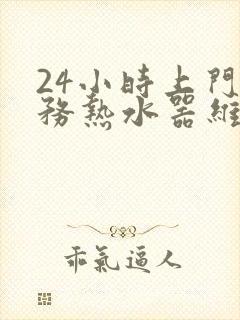 24小時上門
務熱水器維
乖氣逼人